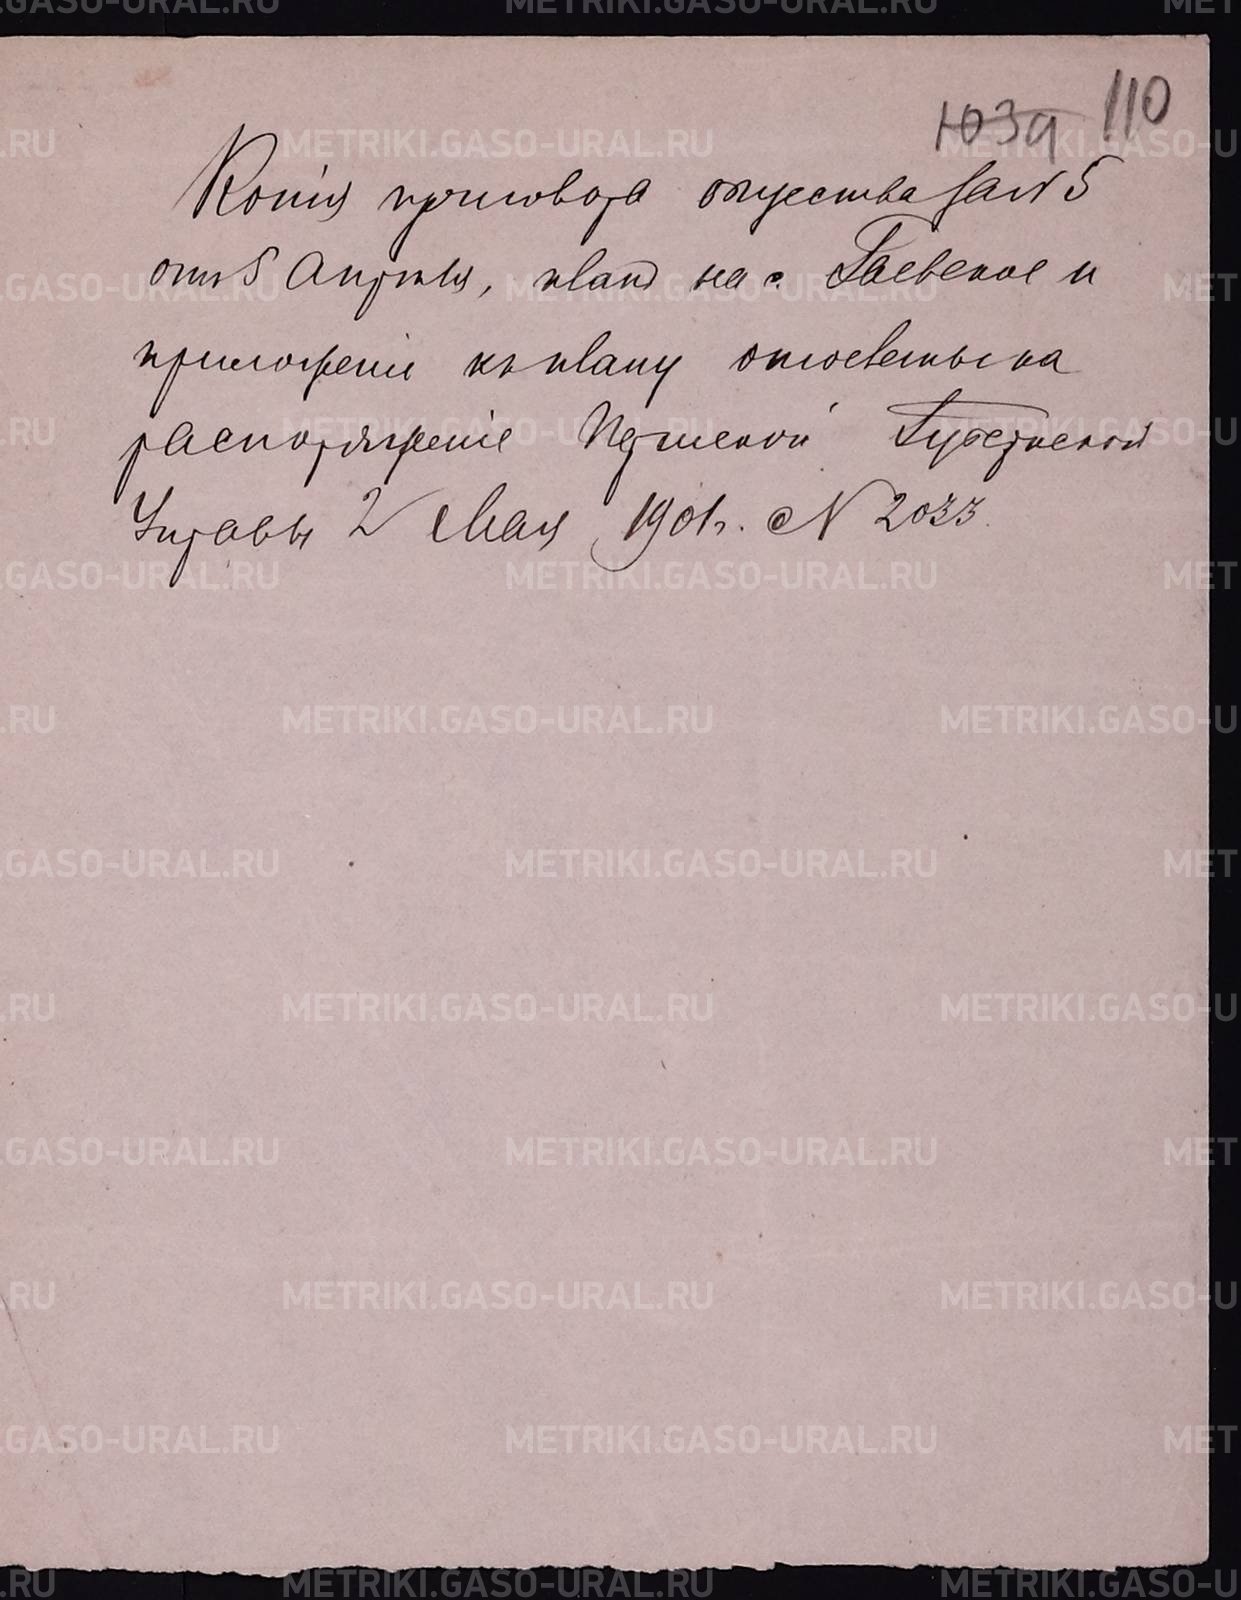 110
103а
Копія приговора общества за № 5
отъ 5 Апрѣля, планъ на с. Гаевское и
приложеніе къ плану отосваны на
распоряженіе Пермской Губернской
Управы 2 Мая 1901 г. № 2033